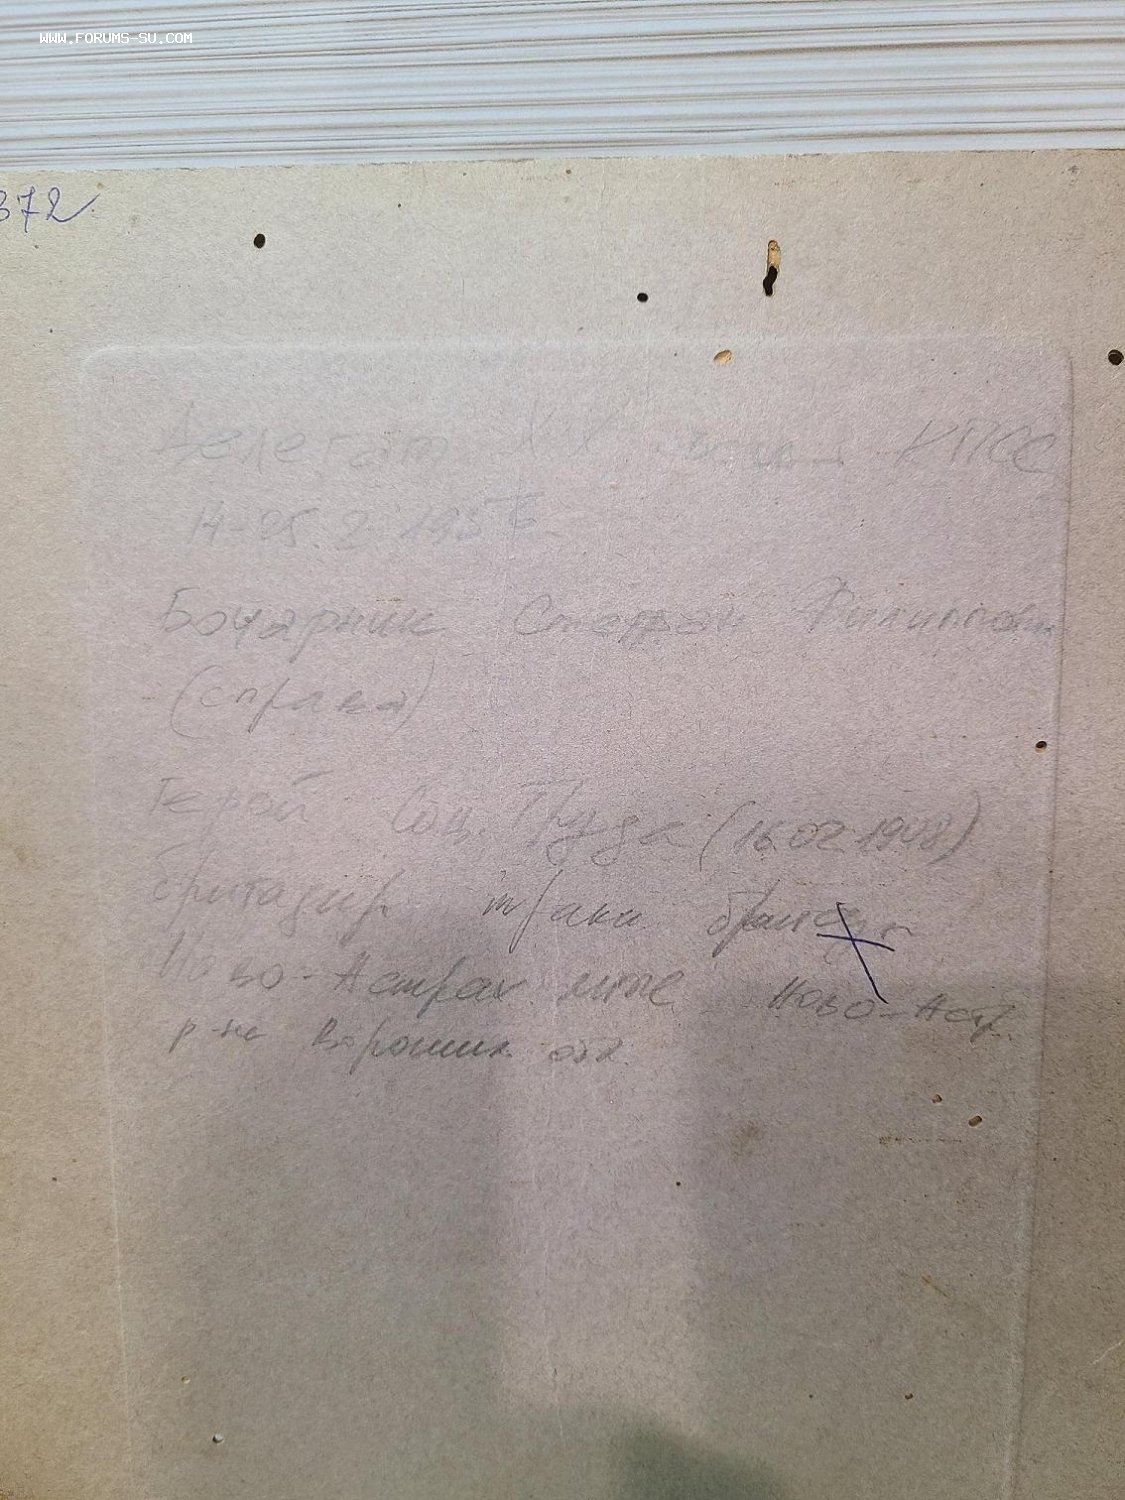 WWW.FORUMS-SU.COM
372
Делегат XX КПСС
14-25.2.195
Бочарник Степан Филиппович
(справа)
Герой Соц. Труда (16 02 1948)
бригадир тракт
Ново-Астрах Ново-Астр.
р-на Ворошил обл